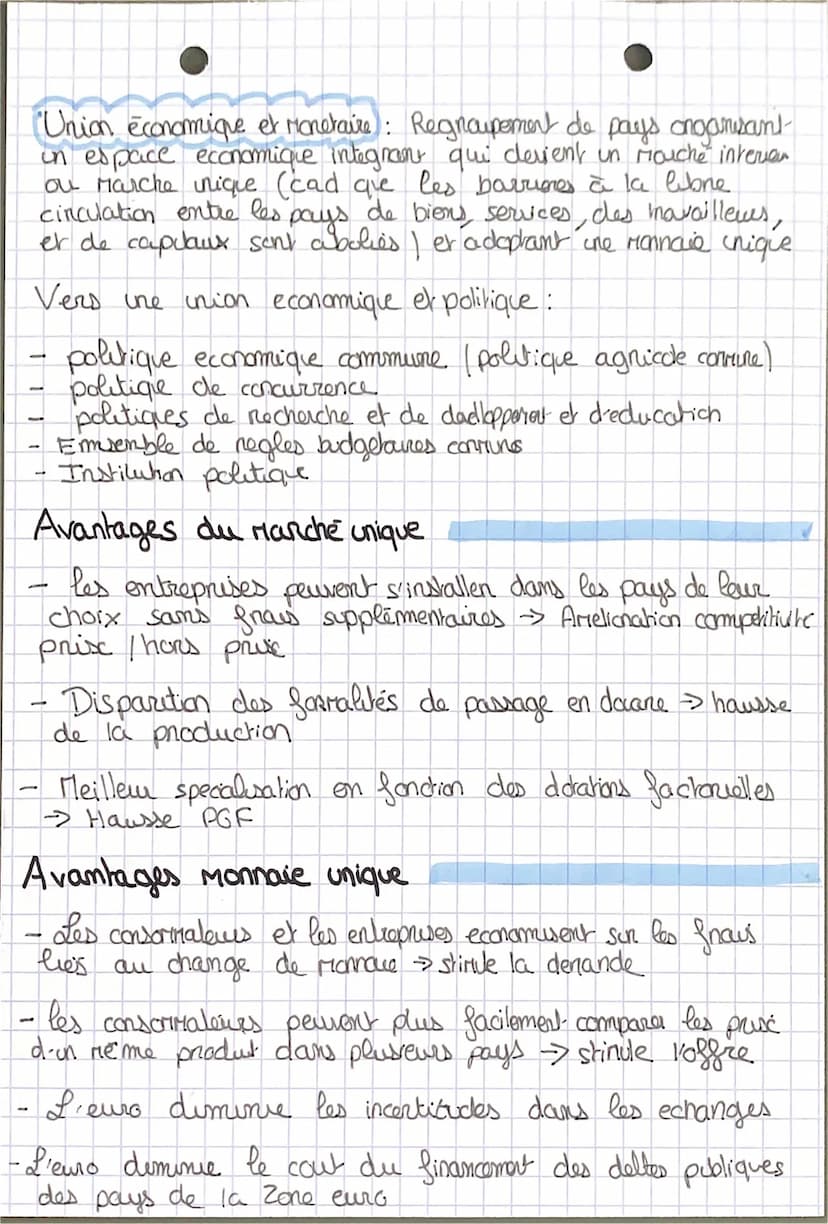 Union économique et Monetaire : Regroupement de pays organisant
un espace economique integrant qui devient un Marché interieur
ou Marche unique (cad que les barrieres à la libre
circulation entre les pays de biens, services, des travailleurs,
et de capitaux sont abolies ) et adoptant une Monnaie unique
Vers une union economique et politique :
- politique economique commune (politique agricole commune)
- politique de concurrence
- politiques de recherche et de developpement et d'education
- Ensemble de regles budgetaires communs
- Institution politique
Avantages du Marché unique
- les entreprises peuvent s'installer dans les pays de leur
choix sans frais supplémentaires → Amelioration competitivite
prix / hors prix
- Disparition des formalités de passage en douane → hausse
de la production
- Meilleur specialisation en fonction des dotations factorielles
→ Hausse PGF
Avantages Monnaie unique
- Les consommateurs et les entreprises economisent sur les frais
liés au change de Monnaie → stimule la demande
- les consommateurs peuvent plus facilement comparer les prix
d'un même produit dans plusieurs pays → stimule l'offre
- L'euro diminue les incertitudes dans les echanges
- L'euro diminue le cout du financement des dettes publiques
des pays de la Zone euro